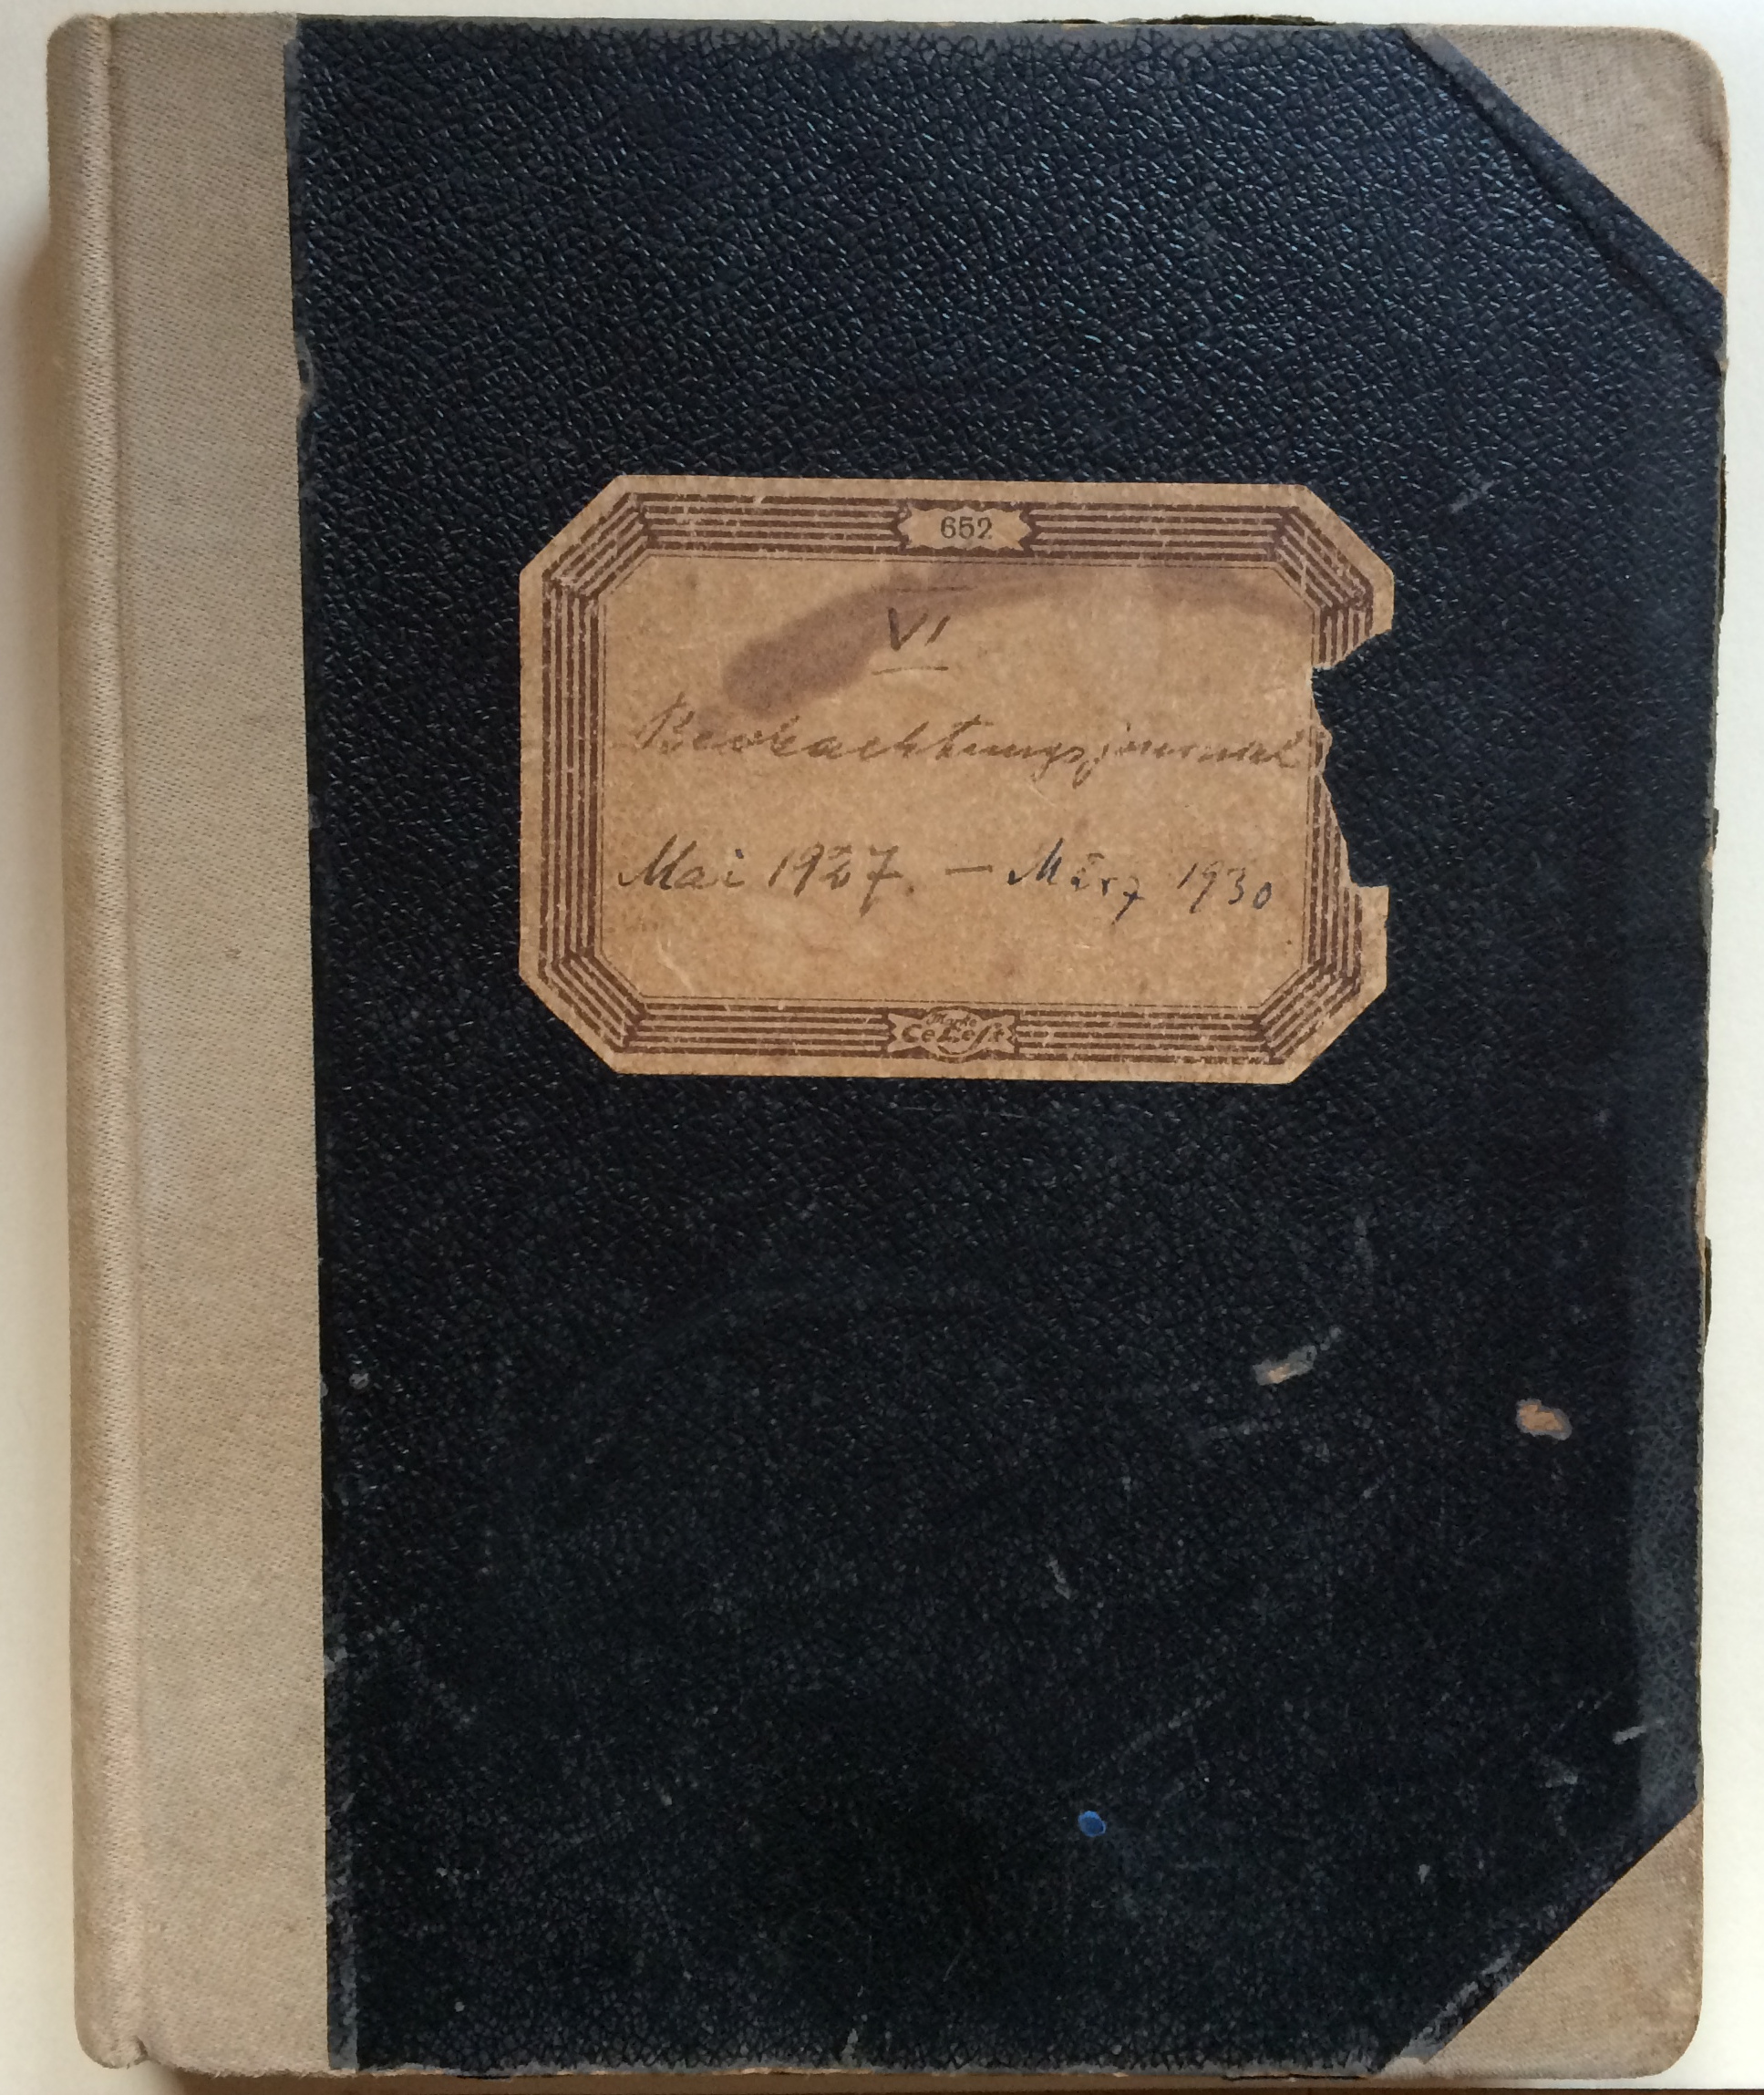 652
VI
Beobachtungsjournal
Mai 1927. – März 1930
Marke